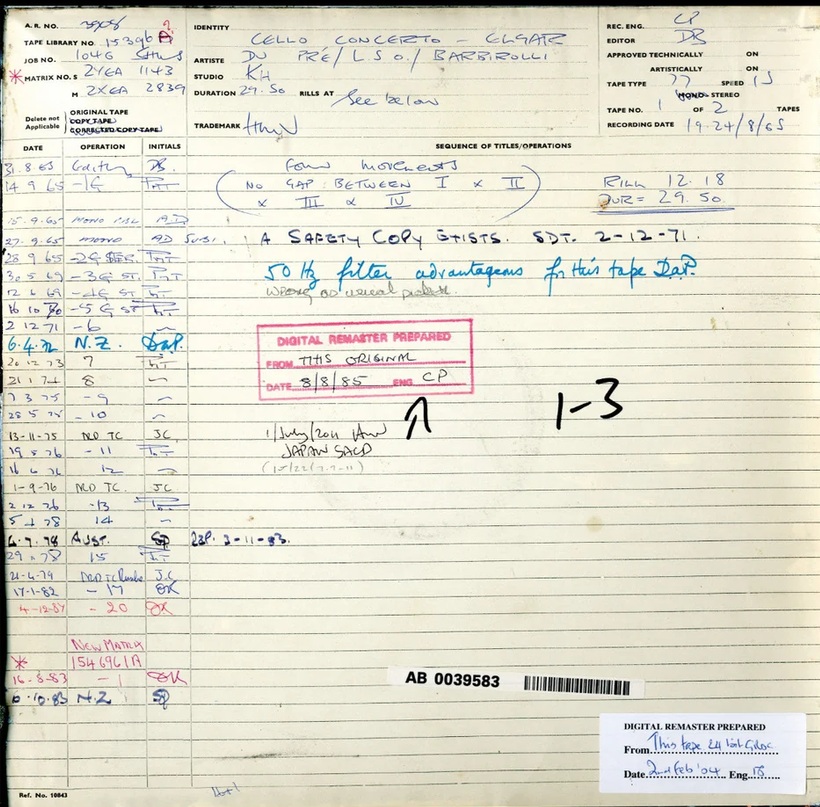 A.R. NO.
TAPE LIBRARY NO. 15396 A ?
JOB NO. 1046
* MATRIX NO. S 2YEA 1143
M 2XEA 2839
Delete not Applicable
ORIGINAL TAPE
COPY TAPE
CORRECTED COPY TAPE
IDENTITY
CELLO CONCERTO - ELGAR
ARTISTE DU PRÉ / L.S.O. / BARBIROLLI
STUDIO KH
DURATION 29.50 RILLS AT See below
TRADEMARK HMV
REC. ENG. CP
EDITOR DB
APPROVED TECHNICALLY ON
ARTISTICALLY ON
TAPE TYPE 77 SPEED 15
MONO-STEREO
TAPE NO. 1 OF 2 TAPES
RECORDING DATE 19-24/8/65
DATE OPERATION INITIALS
SEQUENCE OF TITLES/OPERATIONS
31.8.65 Editing DB.
14 9 65 -1G
15.9.65 MONO AD
27.9.65 MONO AD
28 9 65 -2G
30 5 69 -3G ST.
12 6 69 -4G ST
16 10 70 -5 G ST
2 12 71 -6
6.4.72 N.Z. D.a.P.
20 12 73 7
21 1 74 8
7 3 75 -9
28 5 75 -10
13-11-75 TC JC
19 5 76 -11
16 6 76 12
1-9-76 TC. JC
2 12 76 -13
5 1 78 14
6.7.78 AUST. SP 2-11-83.
29 78 15
21-4-79 TC J.C
17-1-82 -17 OK
4-12-81 -20 OK
NEW MATRIX
* 1546961A
16-8-83 -1 OK
10.83 N.Z SP
Four movements
(NO GAP BETWEEN I & II
& III & IV)
RILL 12.18
DUR = 29.50.
A SAFETY COPY EXISTS. SDT. 2-12-71.
50 Hz filter advantageous for this tape D.a.P.
WRONG as usual
DIGITAL REMASTER PREPARED
FROM THIS ORIGINAL
DATE 8/8/85 ENG CP
1-3
1/July/2011
JAPAN SACD
AB 0039583
DIGITAL REMASTER PREPARED
From This tape 24 bit
Date 2nd Feb '04 Eng.
Ref. No. 10843